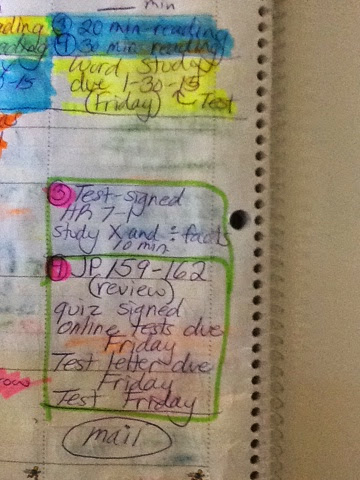 min
③ 20 min reading
④ 30 min reading
Word Study
due 1-30-15
(Friday) Test
-15
③ Test-signed
HR 7-P
Study X and ÷ facts
10 min
④ JP 159-162
(review)
quiz signed
online tests due
Friday
Test letter due
Friday
Test Friday
mail